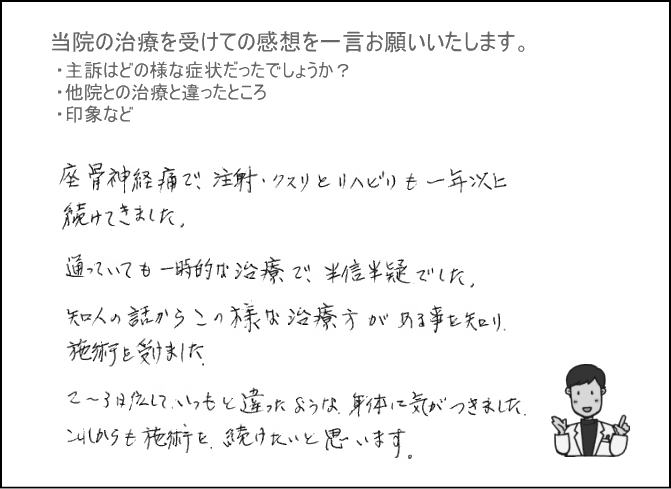 当院の治療を受けての感想を一言お願いいたします。
・主訴はどの様な症状だったでしょうか？
・他院との治療と違ったところ
・印象など
座骨神経痛で、注射・クスリとリハビリも一年以上
続けてきました。
通っていても一時的な治療で、半信半疑でした。
知人の話からこの様な治療方がある事を知り、
施術を受けました。
2〜3日位して、いつもと違ったような、身体に気がつきました。
これからも施術を、続けたいと思います。